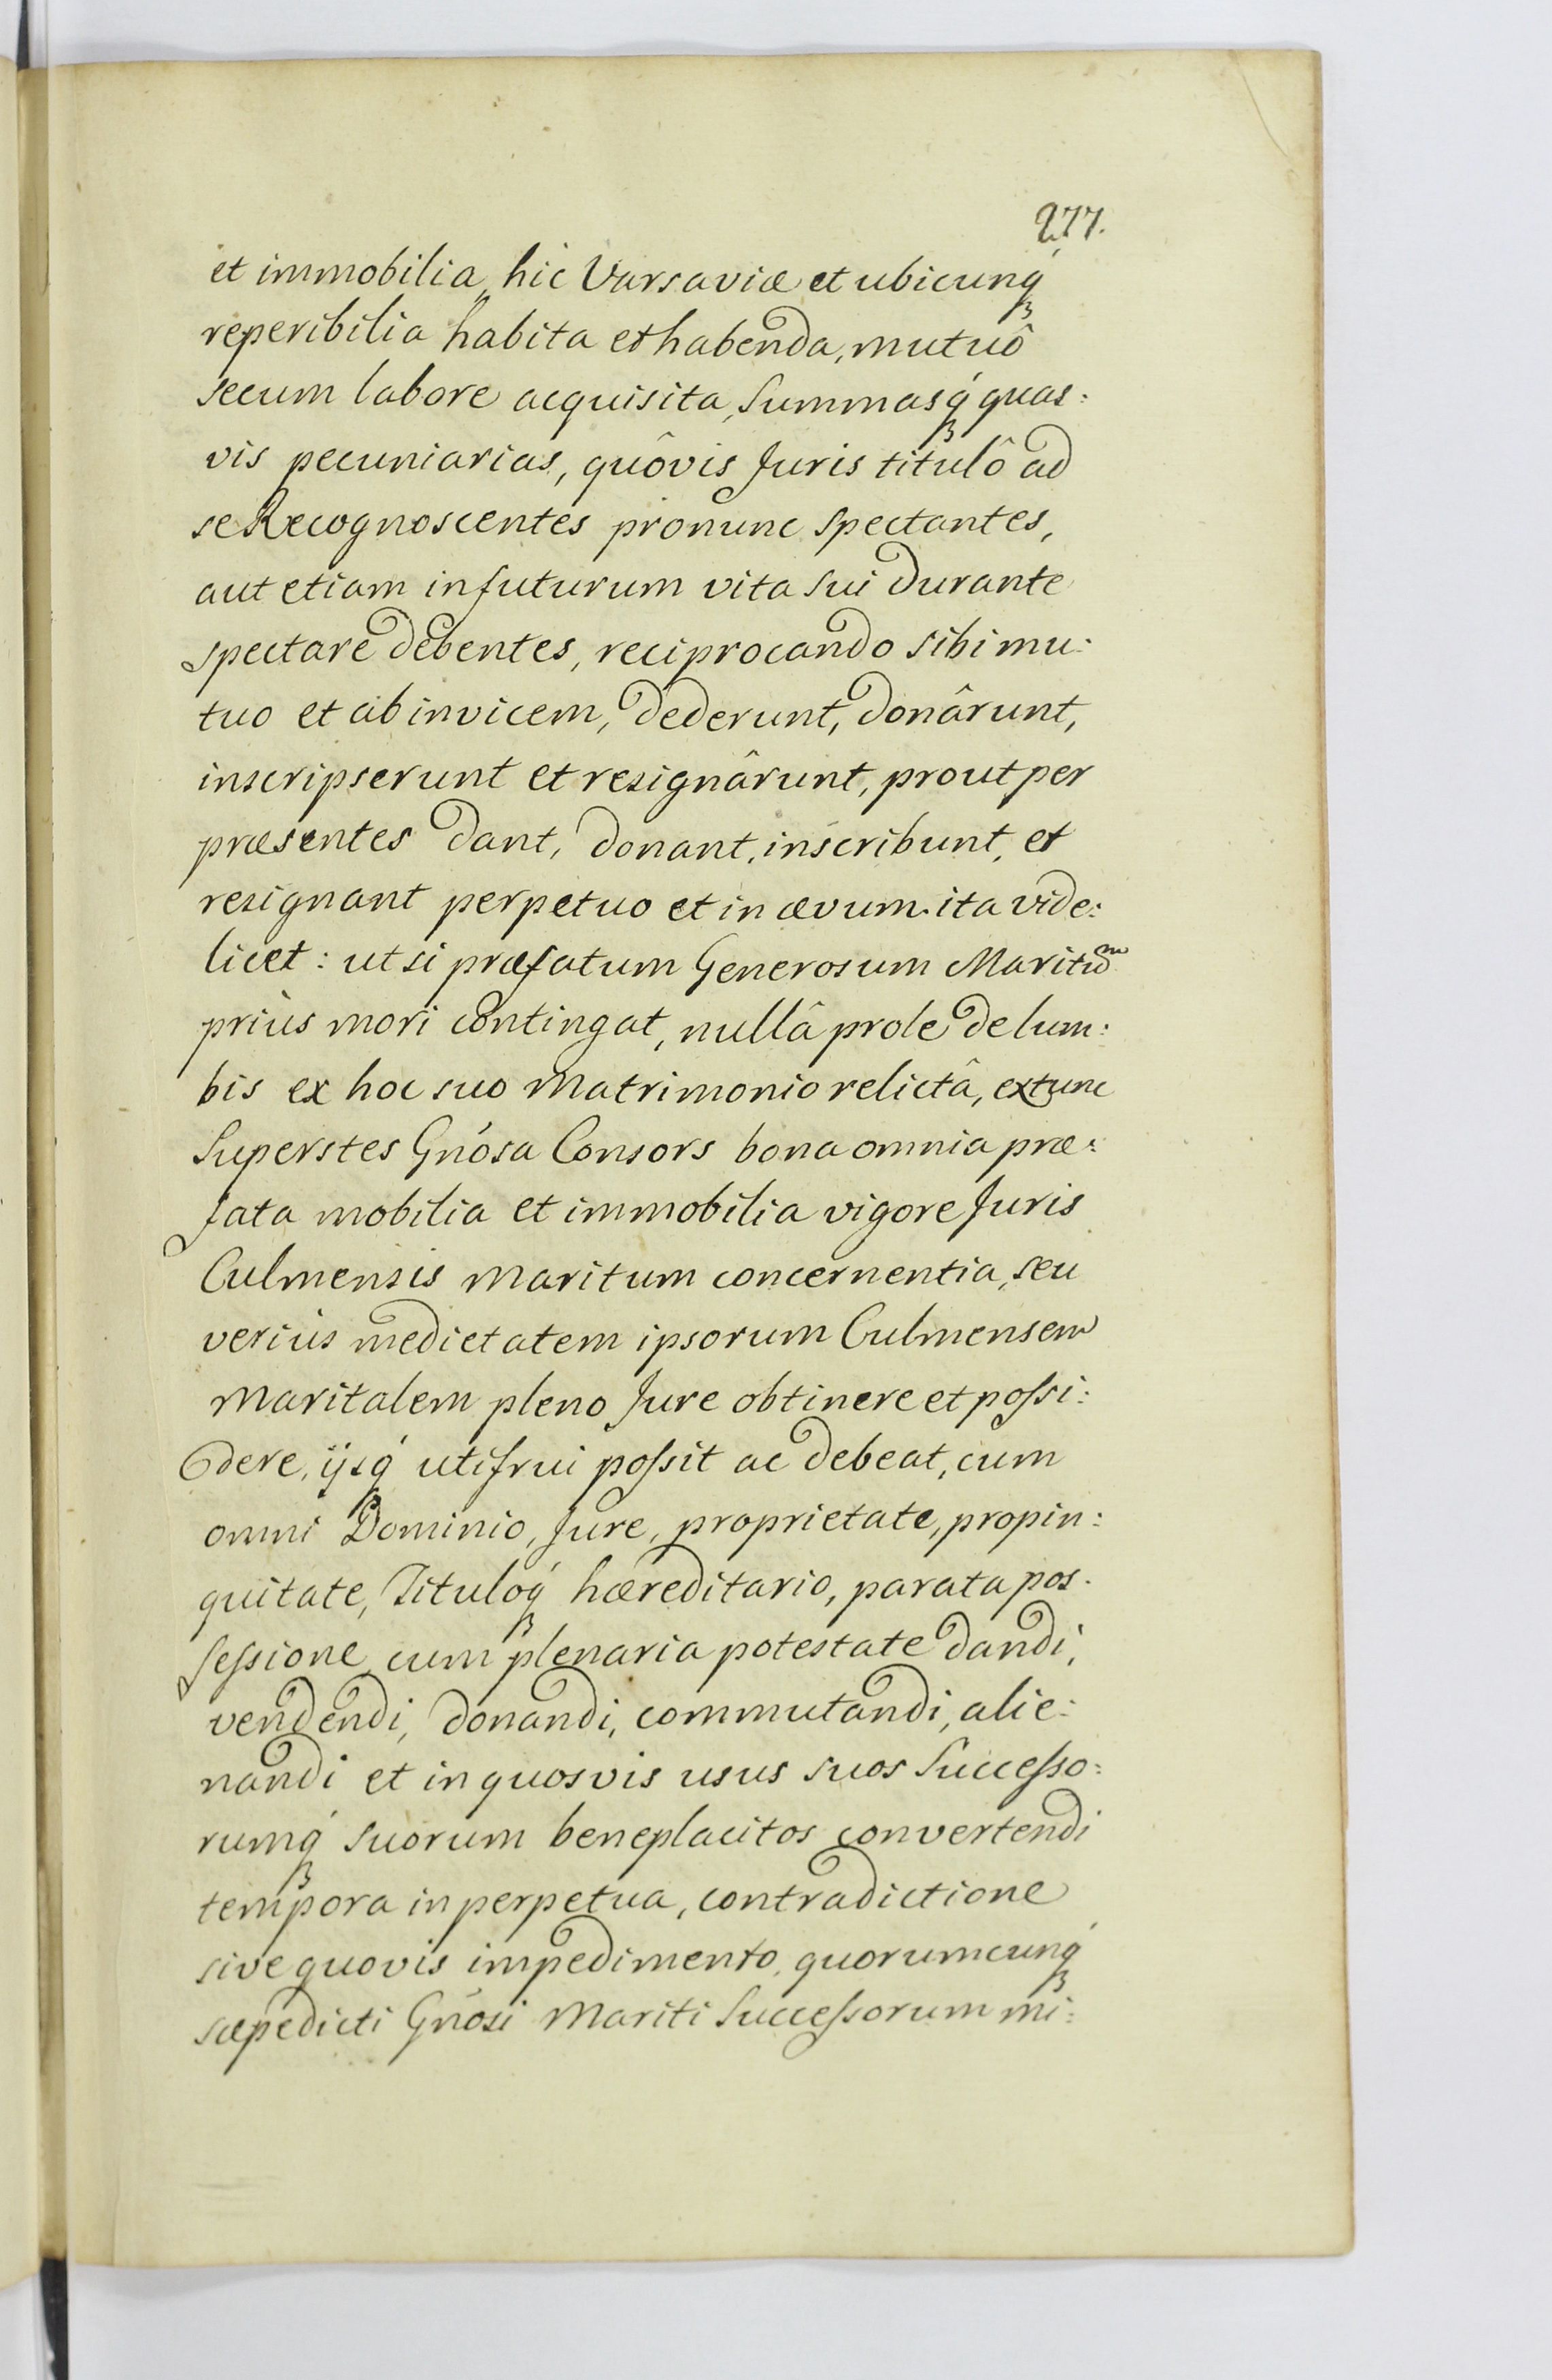 277.
et immobilia, hic Varsaviæ et ubicunq́ꝫ
reperibilia habita et habenda, mutuô
secum labore acquisita, Summasq́ꝫ quas:
vis pecuniarias, quôvis Juris titulô ad
se Recognoscentes pronunc spectantes,
aut etiam in futurum vita sui durante
spectare debentes, reciprocando sibi mu:
tuo et ab invicem, dederunt, donârunt,
inscripserunt et resignârunt, prout per
præsentes dant, donant, inscribunt, et
resignant perpetuo et in ævum. ita vide:
licet: ut si præfatum Generosum Maritũm
prius mori contingat, nullâ prole de lum:
bis ex hoc suo Matrimonio relictâ, extunc
Superstes Gńosa Consors bona omnia præ:
fata mobilia et immobilia vigore Juris
Culmensis maritum concernentia, seu
verius medietatem ipsorum Culmensem
Maritalem pleno Jure obtinere et poſsi:
dere, ijsq́ꝫ uti frui poſsit ac debeat, cum
omni Dominio, Jure, proprietate, propin:
quitate, Tituloq́ꝫ hæreditario, parata pos:
seſsione, cum plenaria potestate dandi,
vendendi, donandi, commutandi, alie:
nandi et in quosvis usus suos Succeſso:
rumq́ꝫ suorum beneplacitos convertendi
tempora in perpetua, contradictione
sive quovis impedimento, quorumcunq́ꝫ
sæpedicti Gńosi Mariti Succeſsorum mi: